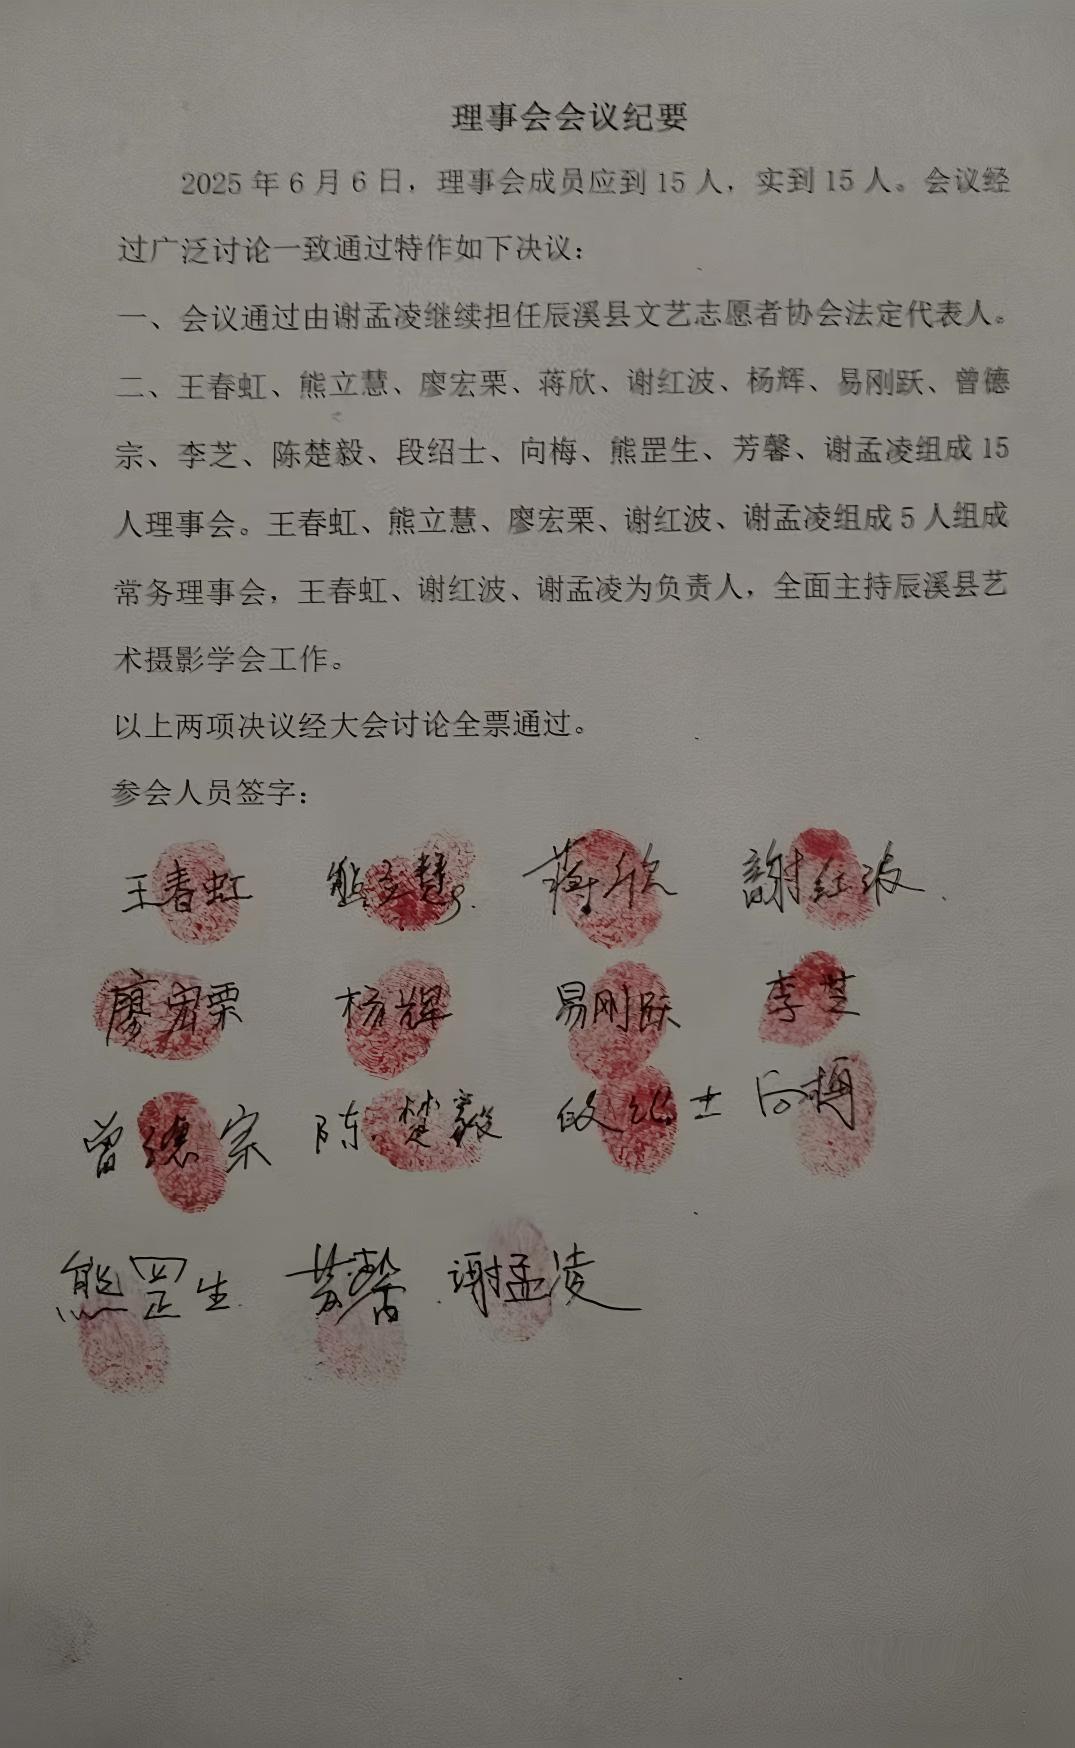 理事会会议纪要
2025年6月6日，理事会成员应到15人，实到15人。会议经
过广泛讨论一致通过特作如下决议：
一、会议通过由谢孟凌继续担任辰溪县文艺志愿者协会法定代表人。
二、王春虹、熊立慧、廖宏栗、蒋欣、谢红波、杨辉、易刚跃、曾德
宗、李芝、陈楚毅、段绍士、向梅、熊罡生、芳馨、谢孟凌组成15
人理事会。王春虹、熊立慧、廖宏栗、谢红波、谢孟凌组成5人组成
常务理事会，王春虹、谢红波、谢孟凌为负责人，全面主持辰溪县艺
术摄影学会工作。
以上两项决议经大会讨论全票通过。
参会人员签字：
王春虹 熊立慧 蒋欣 謝红波
廖宏栗 杨辉 易刚跃 李芝
曾德宗 陈楚毅 段绍士 向梅
熊罡生 芳馨 谢孟凌